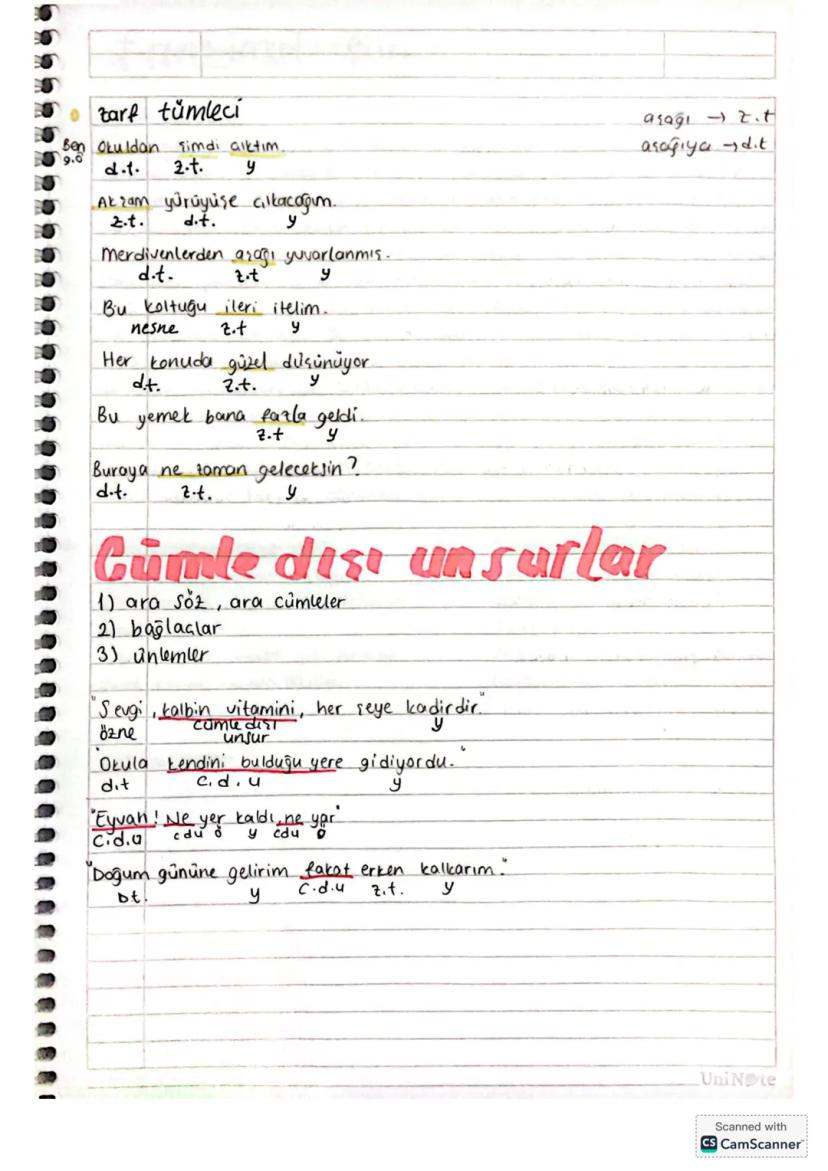 zarf tümleci
aşağı → z.t
aşağıya → d.t
Ben Okuldan şimdi çıktım.
g.ö d.t. z.t. y
Akşam yürüyüşe çıkacağım.
z.t. d.t. y
Merdivenlerden aşağı yuvarlanmış.
d.t. z.t y
Bu koltuğu ileri itelim.
nesne z.t y
Her konuda güzel düşünüyor
d.t. z.t. y
Bu yemek bana fazla geldi.
z.t y
Buraya ne zaman geleceksin?
d.t. z.t. y
Cümle dışı unsurlar
1) ara söz, ara cümleler
2) bağlaçlar
3) ünlemler
"Sevgi, kalbin vitamini, her şeye kadirdir."
özne cümle dışı y
unsur
"Okula kendini bulduğu yere gidiyordu."
d.t c.d.u y
"Eyvah! Ne yer kaldı, ne yar"
c.d.u cdu ö y cdu ö
"Doğum gününe gelirim fakat erken kalkarım."
Dt. y c.d.u z.t. y
UniNote
Scanned with
CS CamScanner